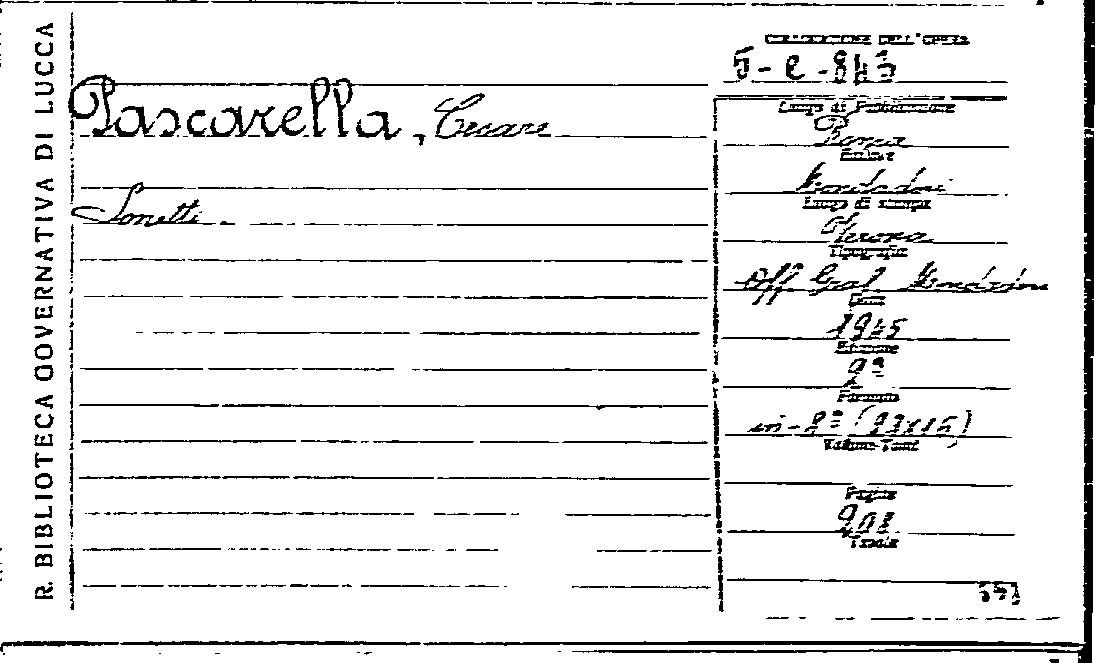 R. BIBLIOTECA GOVERNATIVA DI LUCCA
Pascarella, Cesare
Sonetti.
COLLOCAZIONE DELL'OPERA
5-e-843
Luogo di Pubblicazione
Roma
Editore
Mondadori
Luogo di stampa
Verona
Tipografia
Off. Graf. Mondadori
Anno
1945
Edizione
2ª
Formato
in-8º (23x15)
Volume-Tomi
Pagine
208
Tavole